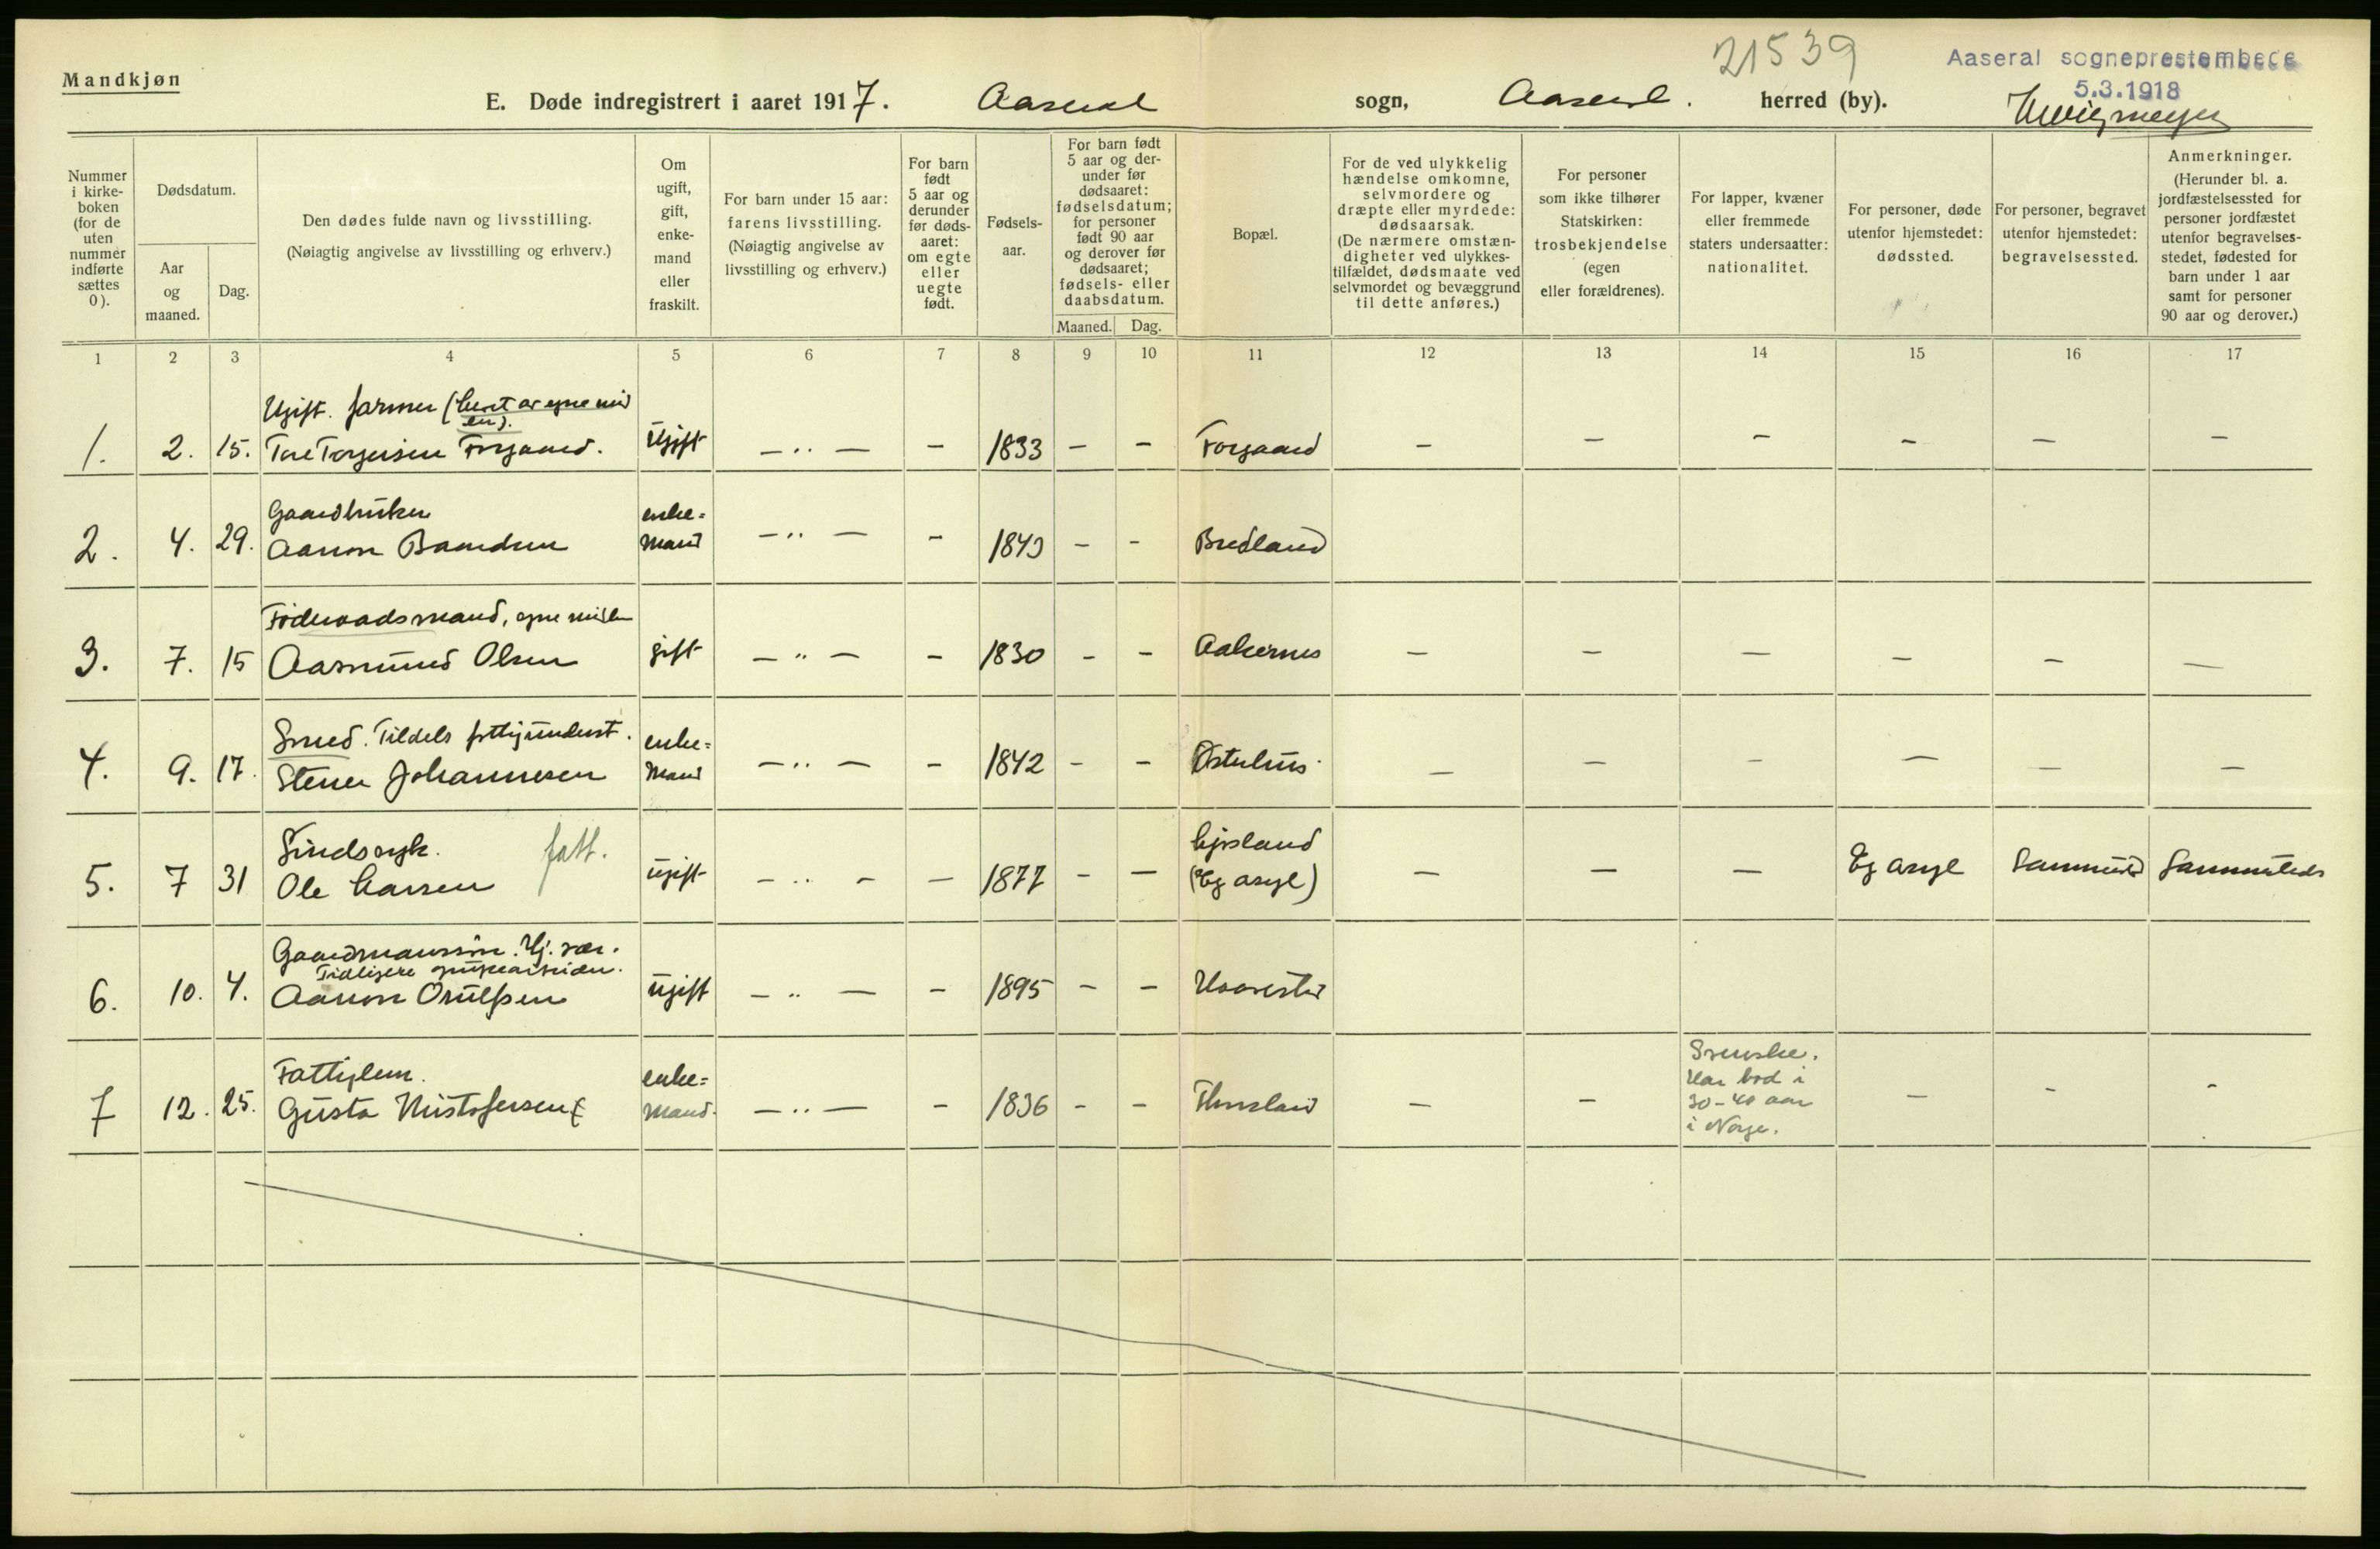 Mandkjøn
21539
Aaseral sogneprestembede
5.3.1918
E. Døde indregistrert i aaret 1917. Aaseral sogn, Aaseral. herred (by).
Nummer
i kirke-
boken
(for de
uten
nummer
indførte
sættes
0).
Dødsdatum.
Aar
og
maaned.
Dag.
Den dødes fulde navn og livsstilling.
(Nøiagtig angivelse av livsstilling og erhverv.)
Om
ugift,
gift,
enke-
mand
eller
fraskilt.
For barn under 15 aar:
farens livsstilling.
(Nøiagtig angivelse av
livsstilling og erhverv.)
For barn
født
5 aar og
derunder
før døds-
aaret:
om egte
eller
uegte
født.
Fødsels-
aar.
For barn født
5 aar og der-
under før
dødsaaret:
fødselsdatum;
for personer
født 90 aar
og derover før
dødsaaret;
fødsels- eller
daabsdatum.
Maaned. Dag.
Bopæl.
For de ved ulykkelig
hændelse omkomne,
selvmordere og
dræpte eller myrdede:
dødsaarsak.
(De nærmere omstæn-
digheter ved ulykkes-
tilfældet, dødsmaate ved
selvmordet og bevæggrund
til dette anføres.)
For personer
som ikke tilhører
Statskirken:
trosbekjendelse
(egen
eller forældrenes).
For lapper, kvæner
eller fremmede
staters undersaatter:
nationalitet.
For personer, døde
utenfor hjemstedet:
dødssted.
For personer, begravet
utenfor hjemstedet:
begravelsessted.
Anmerkninger.
(Herunder bl. a.
jordfæstelsessted for
personer jordfæstet
utenfor begravelses-
stedet, fødested for
barn under 1 aar
samt for personer
90 aar og derover.)
1 2 3 4 5 6 7 8 9 10 11 12 13 14 15 16 17
Ugift. farmer (levet av egne mid
ler).
1. 2. 15. Tore Torgeisen Forgaard. Ugift — „ — – 1833 – – Forgaard – – – – – –
Gaardbruker enke=
2. 4. 29. Aanon Baardsen mand — „ — – 1843 – – Bredland
Føderaadsmand, egne midler
3. 7. 15 Aasmund Olsen gift — „ — – 1830 – – Aakernes – – – – – –
Smed. Tildels fattigunderst. enke=
4. 9. 17. Stener Johannesen mand — „ — – 1842 – – Østulius – – – – – –
Sindssyk. fatt. Ljosland
5. 7 31 Ole Larsen ugift — „ – – 1877 – – (Eg asyl) – – – Eg asyl Sammested Sammesteds
Gaardmanssøn. Hj. vær.
Tidligere grubearbeider.
6. 10. 4. Aanon Osulfsen ugift — „ — – 1895 – – Haaverstad
Fattiglem. enke= Svenske.
Har bod i
7 12. 25. Gusta Kristofersen mand. — „ — – 1836 – – – – 30-40 aar – – –
i Norge.